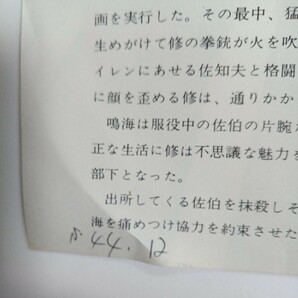 画を実行した。その最中、猛
生めがけて修の拳銃が火を吹
イレンにあせる佐知夫と格闘
に顔を歪める修は、通りかか
鳴海は服役中の佐伯の片腕
正な生活に修は不思議な魅力を
部下となった。
出所してくる佐伯を抹殺しそ
海を痛めつけ協力を約束させた
44.12